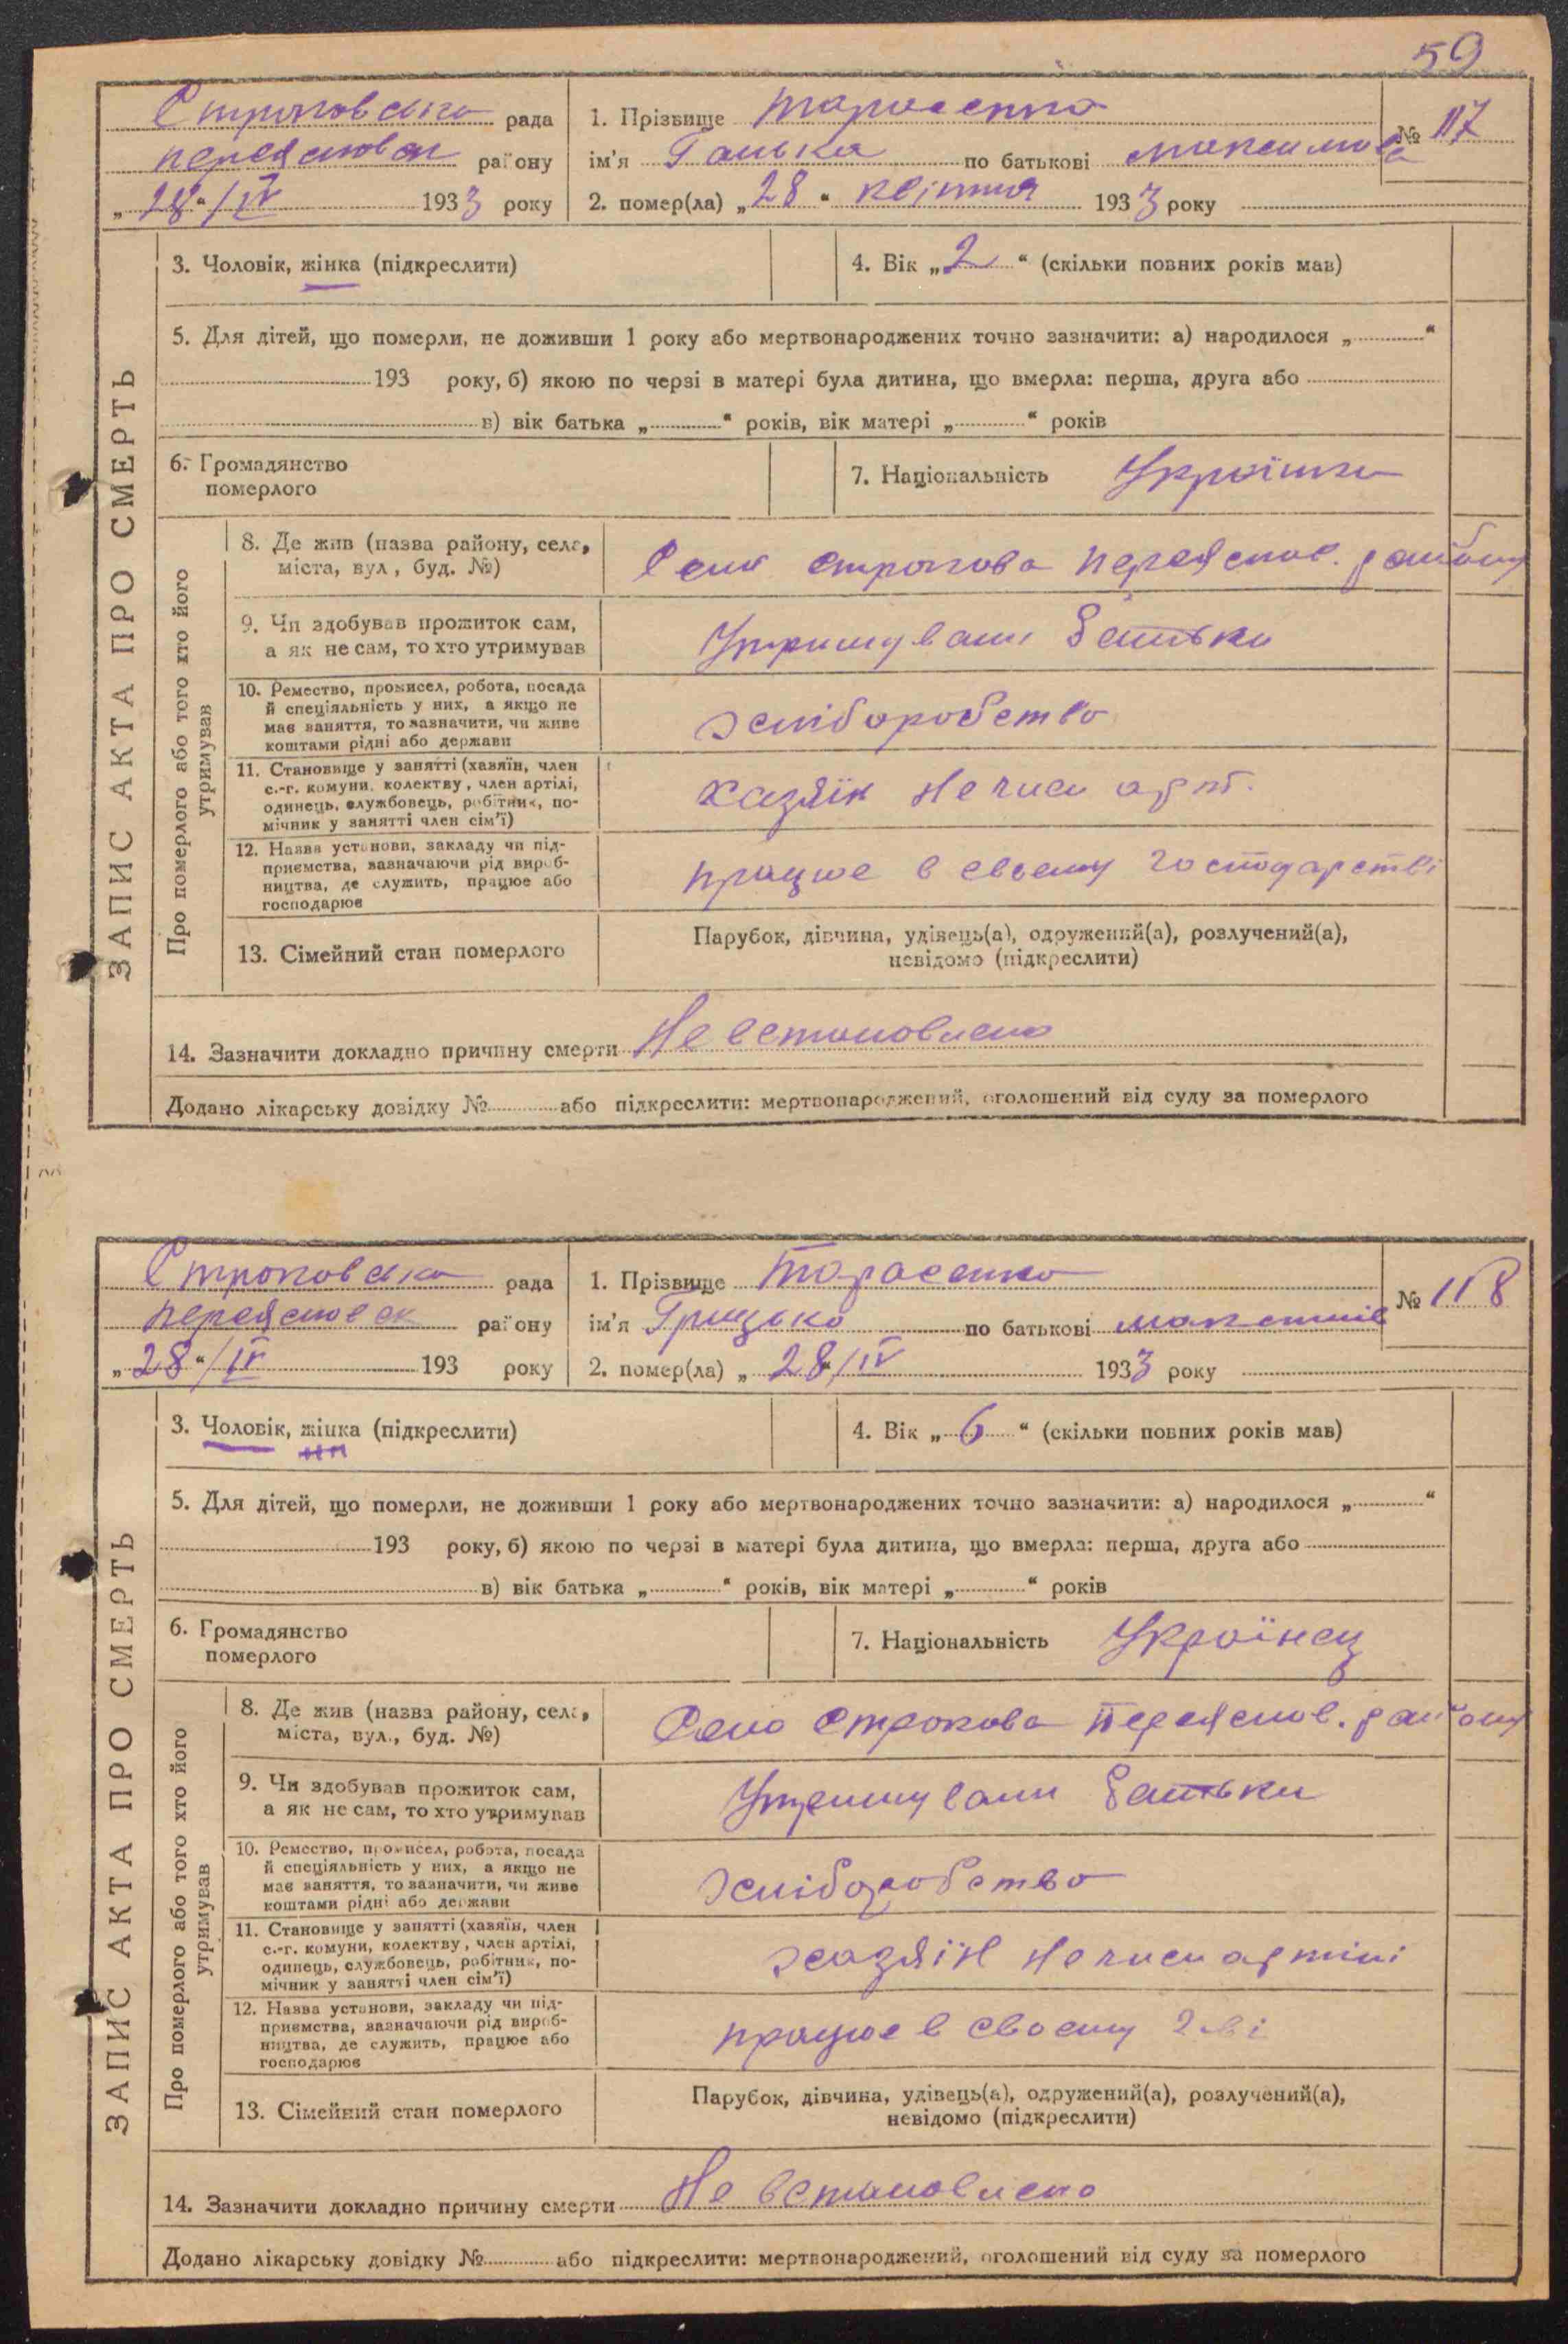 59
Строковська рада
переяславськ району
„28“/IV 1933 року
1. Прізвище Тарасенко
ім'я Ганька по батькові Максимова
№ 117
2. помер(ла) „28“ квітня 1933 року
ЗАПИС АКТА ПРО СМЕРТЬ
3. Чоловік, жінка (підкреслити)
4. Вік „2“ (скільки повних років мав)
5. Для дітей, що померли, не доживши 1 року або мертвонароджених точно зазначити: а) народилося „ “
193 року, б) якою по черзі в матері була дитина, що вмерла: перша, друга або
в) вік батька „ “ років, вік матері „ “ років
6. Громадянство
померлого
7. Національність Українка
Про померлого або того хто його
утримував
8. Де жив (назва району, села,
міста, вул., буд. №)
Село Строкова Переяслов. району
9. Чи здобував прожиток сам,
а як не сам, то хто утримував
Утримували батьки
10. Ремество, промисел, робота, посада
й спеціяльність у них, а якщо не
має заняття, то зазначити, чи живе
коштами рідні або держави
хліборобство
11. Становище у занятті (хазяїн, член
с.-г. комуни, колектву, член артілі,
одинець, службовець, робітник, по-
мічник у занятті член сім'ї)
Хазяїн не член арт.
12. Назва установи, закладу чи під-
приємства, зазначаючи рід вироб-
ництва, де служить, працює або
господарює
працює в своєму господарстві
13. Сімейний стан померлого
Парубок, дівчина, удівець(а), одружений(а), розлучений(а),
невідомо (підкреслити)
14. Зазначити докладно причину смерти Не встановлено
Додано лікарську довідку № або підкреслити: мертвонароджений, оголошений від суду за померлого
Строковська рада
переяславськ району
„28“/IV 193 року
1. Прізвище Тарасенко
ім'я Грицько по батькові Максимів
№ 118
2. помер(ла) „28“/IV 1933 року
ЗАПИС АКТА ПРО СМЕРТЬ
3. Чоловік, жінка (підкреслити)
4. Вік „6“ (скільки повних років мав)
5. Для дітей, що померли, не доживши 1 року або мертвонароджених точно зазначити: а) народилося „ “
193 року, б) якою по черзі в матері була дитина, що вмерла: перша, друга або
в) вік батька „ “ років, вік матері „ “ років
6. Громадянство
померлого
7. Національність Українец
Про померлого або того хто його
утримував
8. Де жив (назва району, села,
міста, вул., буд. №)
Село Строкова Переяслов. району
9. Чи здобував прожиток сам,
а як не сам, то хто утримував
Утримували батьки
10. Ремество, промисел, робота, посада
й спеціяльність у них, а якщо не
має заняття, то зазначити, чи живе
коштами рідні або держави
хліборобство
11. Становище у занятті (хазяїн, член
с.-г. комуни, колектву, член артілі,
одинець, службовець, робітник, по-
мічник у занятті член сім'ї)
хазяїн не член артілі
12. Назва установи, закладу чи під-
приємства, зазначаючи рід вироб-
ництва, де служить, працює або
господарює
працює в своєму
13. Сімейний стан померлого
Парубок, дівчина, удівець(а), одружений(а), розлучений(а),
невідомо (підкреслити)
14. Зазначити докладно причину смерти Не встановлено
Додано лікарську довідку № або підкреслити: мертвонароджений, оголошений від суду за померлого